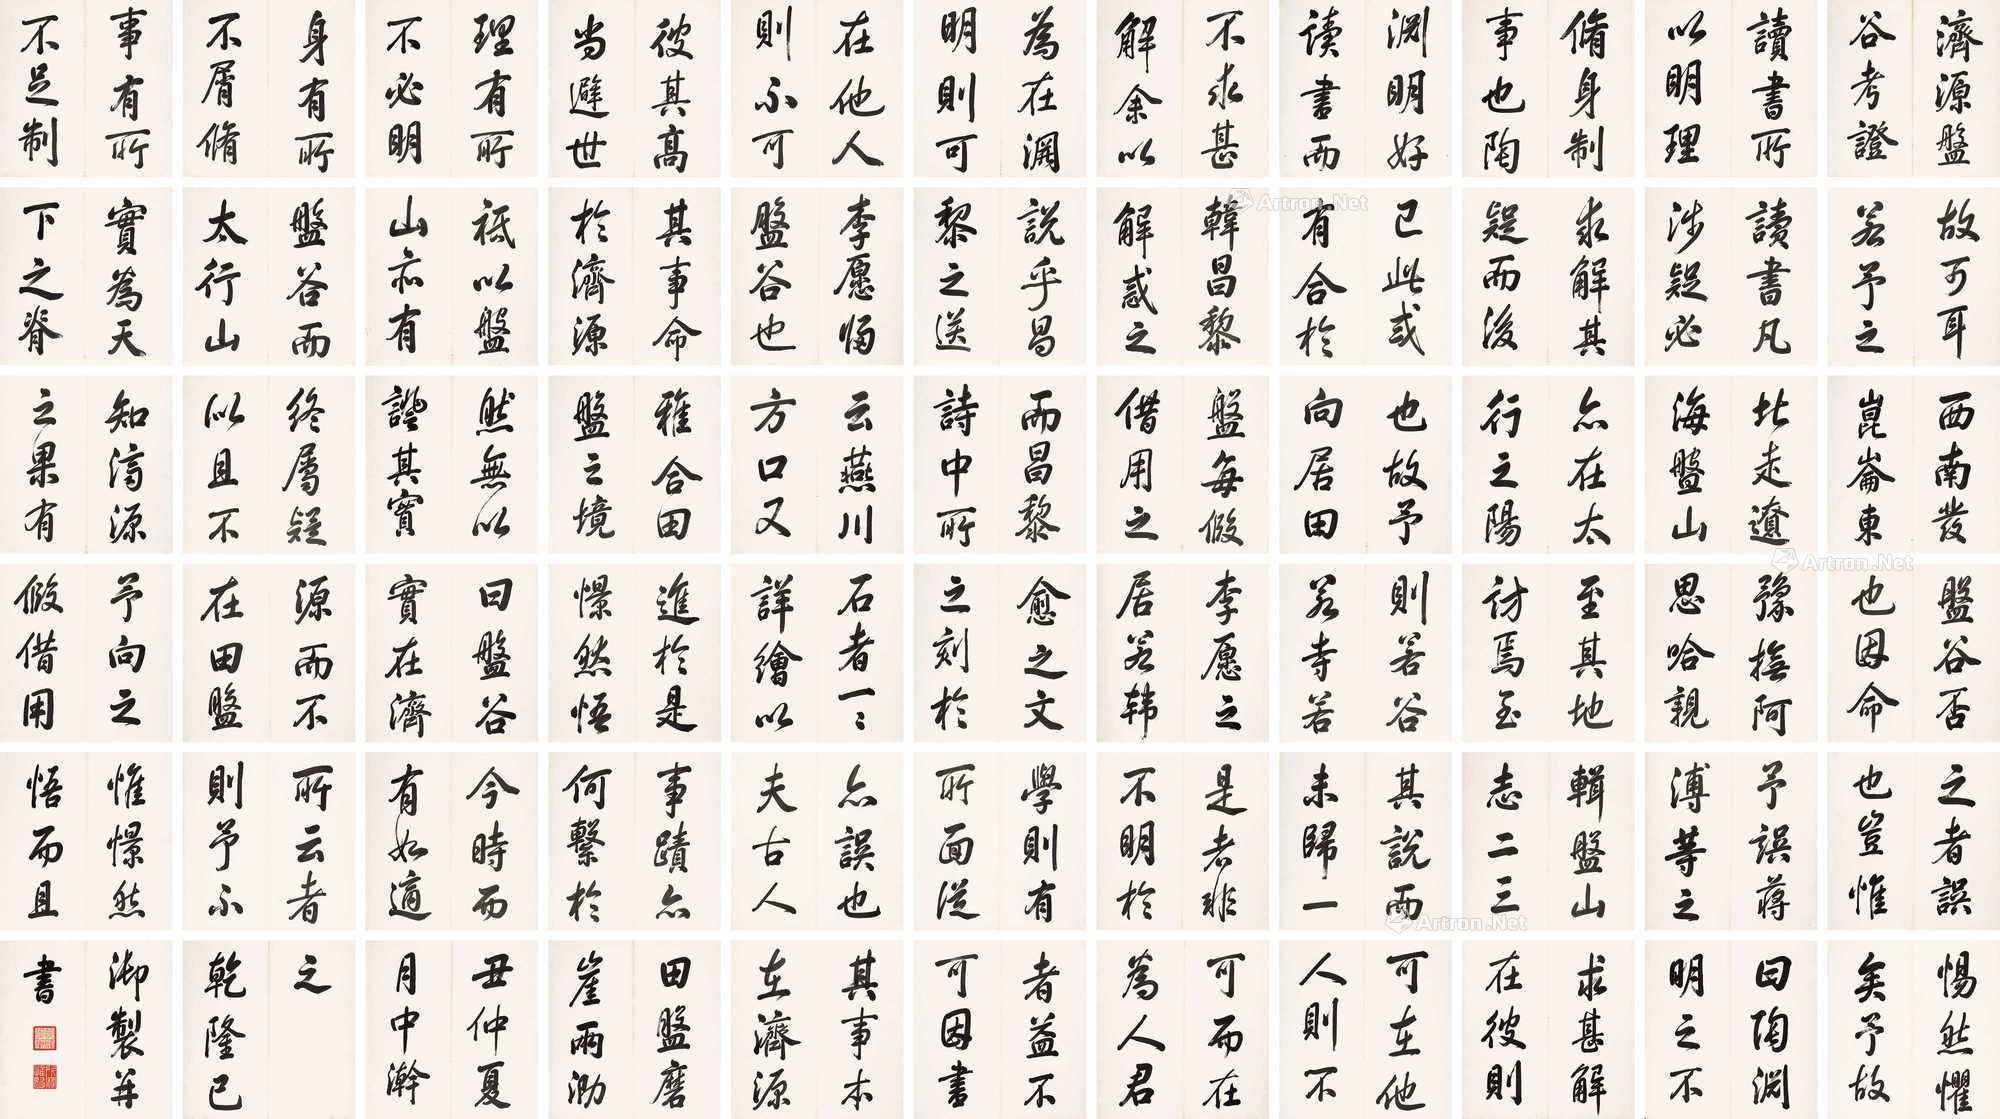 濟源盤
谷考證
讀書所
以明理
脩身制
事也陶
淵明好
读書而
不求甚
解余以
為在淵
明則可
在他人
則不可
彼其高
尚避世
理有所
不必明
身有所
不屑脩
事有所
不足制
故可耳
若予之
讀書凡
涉疑必
求解其
疑而後
已此或
有合於
韓昌黎
解惑之
說乎昌
黎之送
李愿歸
盤谷也
其事命
於濟源
祗以盤
山亦有
盤谷而
太行山
實為天
下之脊
西南發
崑崙東
北走遼
海盤山
亦在太
行之陽
也故予
向居田
盤每假
借用之
而昌黎
詩中所
云燕川
方口又
雅合田
盤之境
然無以
證其實
終屬疑
似且不
知濟源
之果有
盤谷否
也因命
豫撫阿
思哈親
至其地
訪焉至
則若谷
若寺若
李愿之
居若韩
愈之文
之刻於
石者一々
詳繪以
進於是
憬然悟
曰盤谷
實在濟
源而不
在田盤
予向之
假借用
之者誤
也豈惟
予誤蔣
溥等之
輯盤山
志二三
其說而
未歸一
是者非
不明於
學則有
所面從
亦誤也
夫古人
事蹟亦
何繫於
今時而
有如適
所云者
則予不
惟憬然
悟而且
惕然懼
矣予故
曰陶淵
明之不
求甚解
在彼則
可在他
人則不
可而在
為人君
者益不
可因書
其事本
在濟源
田盤磨
崖兩泐
丑仲夏
月中澣
之
乾隆己
御製并
書
Artron.Net
Artron.Net
Artron.Net